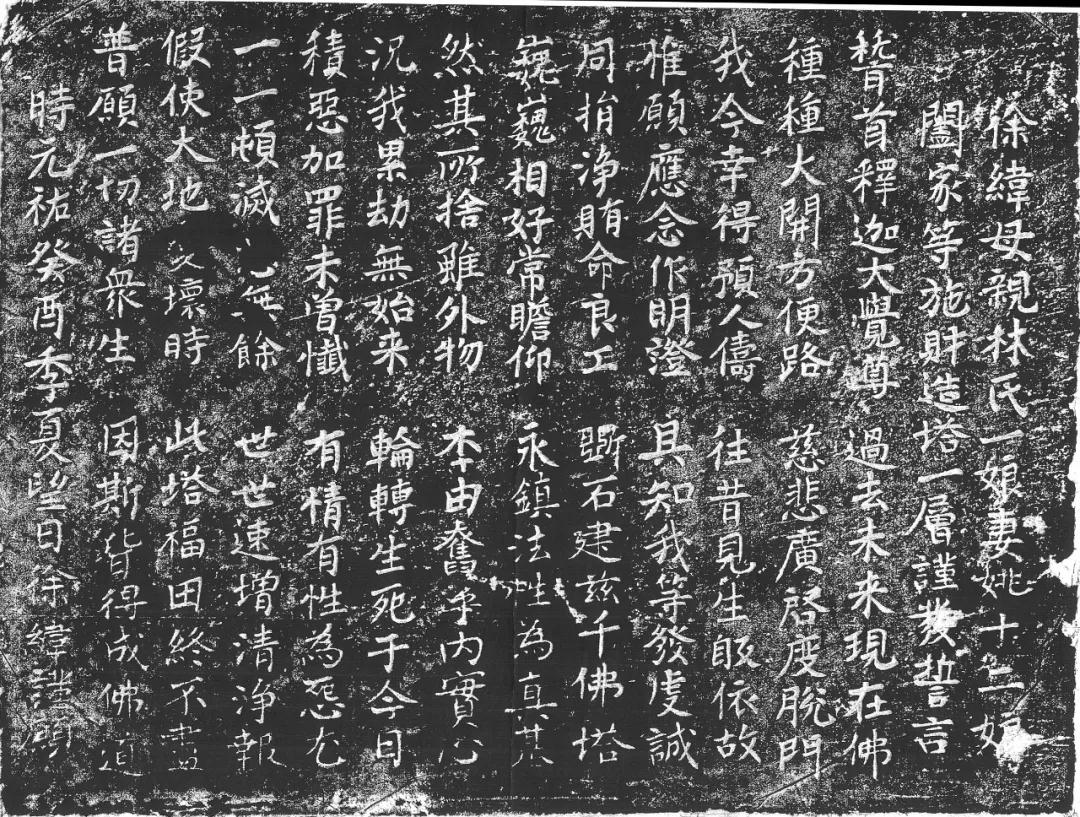 徐緯母親林氏一娘妻姚十二娘
闔家等施財造塔一層謹發誓言
稽首釋迦大覺尊 過去未来現在佛
種種大開方便路 慈悲廣啓度脫門
我今幸得預人儔 往昔見生眼依故
惟願應念作明證 具知我等發虔誠
同捐浄賄命良工 斵石建兹千佛塔
巍巍相好常瞻仰 永鎮法性為真基
然其所捨雖外物 本由奮乎內實心
況我累劫無始来 輪轉生死于今日
積惡加罪未曽懺 有情有性為惡尤
一一頓滅無餘 世世速增清浄報
假使大地火壞時 此塔福田終不盡
普願一切諸衆生 因斯皆得成佛道
時元祐癸酉季夏望日徐緯謹願